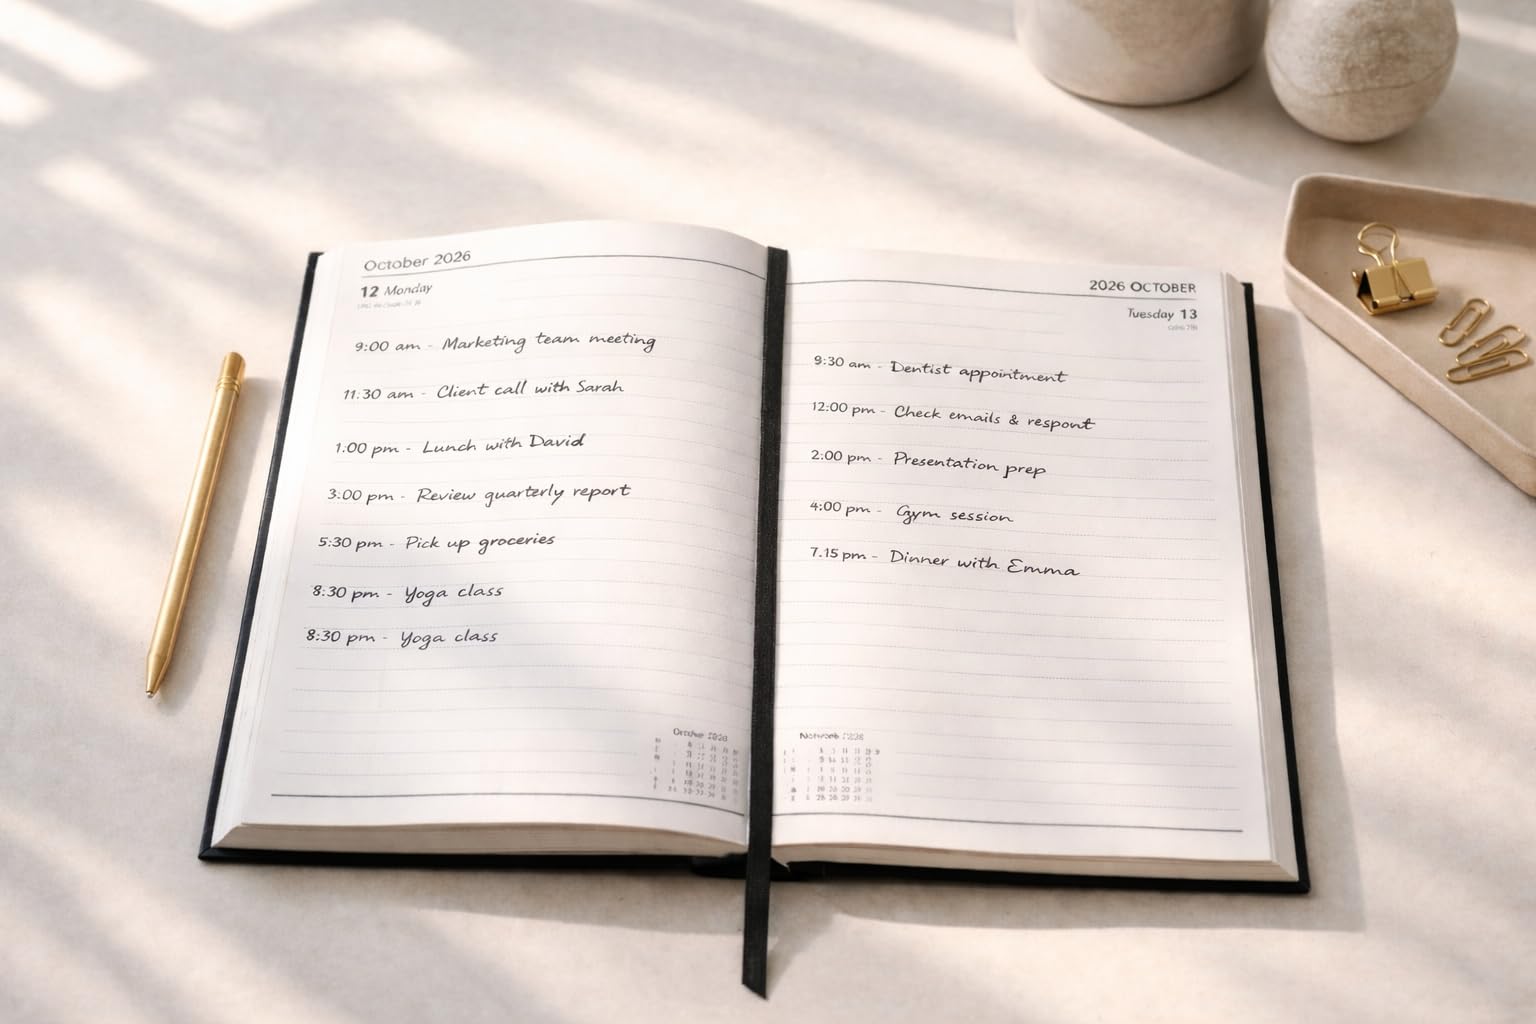 October 2026
12 Monday
9:00 am - Marketing team meeting
11:30 am - Client call with Sarah
1:00 pm - Lunch with David
3:00 pm - Review quarterly report
5:30 pm - Pick up groceries
8:30 pm - Yoga class
8:30 pm - Yoga class
2026 OCTOBER
Tuesday 13
9:30 am - Dentist appointment
12:00 pm - Check emails & respont
2:00 pm - Presentation prep
4:00 pm - Gym session
7.15 pm - Dinner with Emma